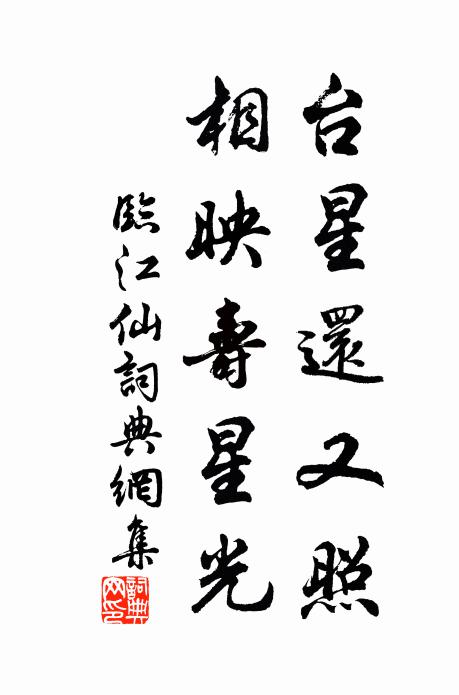 台星還又照
相映壽星光
臨江仙詞典網集
詞典網印